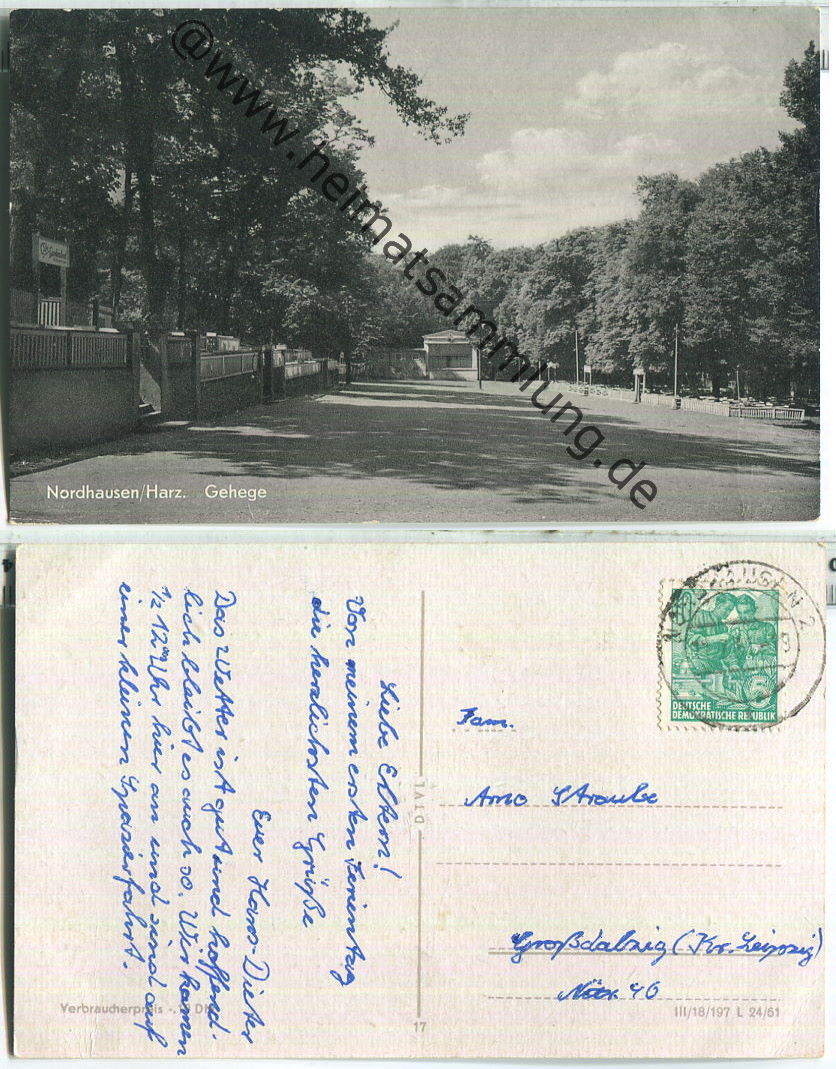 @www.heimatsammlung.de
Nordhausen/Harz. Gehege
Liebe Eltern!
Von meinem ersten Ferientag
die herzlichsten Grüße
Euer Hans-Dieter
Das Wetter ist gut und hoffent-
lich bleibt es auch so. Wir kamen
½ 12⁰⁰ Uhr hier an und sind auf
einer kleinen Spazierfahrt.
Verbraucherpreis -. DM
17
NORDHAUSEN 2
5
DEUTSCHE
DEMOKRATISCHE REPUBLIK
Fam.
Arno Straube
Großdalzig (Kr. Leipzig)
Nr. 40
III/18/197 L 24/61